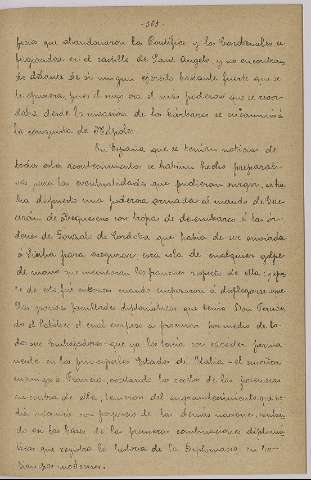 - 363 -
que abandonaron la Pontificia y los Cardenales se
refugiaron en el castillo de Sant Angelo, y no encontran
do delante de si ningun ejercito bastante fuerte que se
le opusiera, pues el suyo era el más poderoso que se recor
daba desde la invasion de los bárbaros se encaminó á
la conquista de Nápoles.
En España que se tenian noticias de
todos estos acontecimientos se habian hecho preparati
vos para las eventualidades que pudieran surgir, esta
ba dispuesta una poderosa armada al mando de Gal
cerán de Requesens con tropas de desembarco á las ór
denes de Gonzalo de Cordoba que habia de ser enviada
á Sicilia para asegurar esta isla de cualquier golpe
de mano que intentasen los franceses respecto de ella;
de esta fué entonces cuando empezaron á desplegarse
las grandes facultades diplomáticas que tenia Don Fernan
do el Católico el cual empezó á promover por medio de to
dos sus embajadores que ya los tenia con caracter perma
nente en los principales Estados de Italia - el
contra Francia, excitando los celos de las potencias
en contra de ella, temerosas del engrandecimiento que
con perjuicio de las demas naciones,
do en las bases de las primeras combinaciones diplomá
ticas que registra la historia de la Diplomacia en los
tiempos modernos.